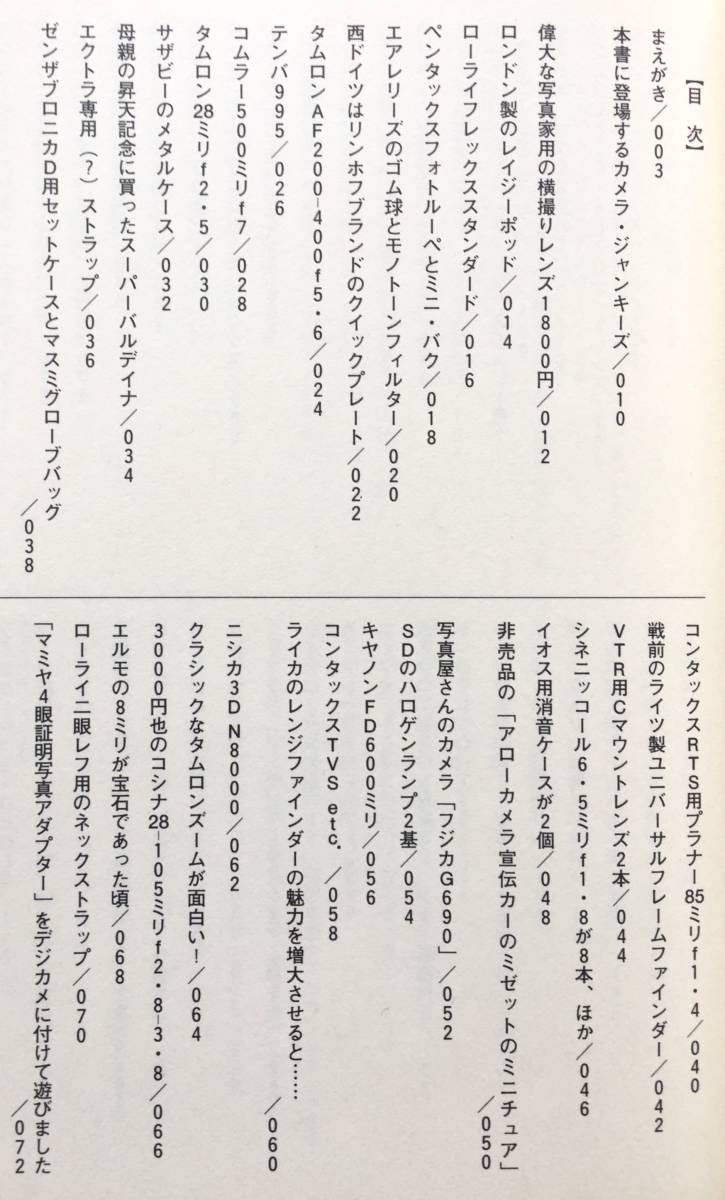 【目　次】
まえがき／003
本書に登場するカメラ・ジャンキーズ／010
偉大な写真家用の横撮りレンズ1800円／012
ロンドン製のレイジーポッド／014
ローライフレックススタンダード／016
ペンタックスフォトルーペとミニ・バク／018
エアレリーズのゴム球とモノトーンフィルター／020
西ドイツはリンホフブランドのクイックプレート／022
タムロンAF200−400f5・6／024
テンバ995／026
コムラー500ミリf7／028
タムロン28ミリf2・5／030
サザビーのメタルケース／032
母親の昇天記念に買ったスーパーバルデイナ／034
エクトラ専用（？）ストラップ／036
ゼンザブロニカD用セットケースとマスミグローブバッグ
／038
コンタックスRTS用プラナー85ミリf1・4／040
戦前のライツ製ユニバーサルフレームファインダー／042
VTR用Cマウントレンズ2本／044
シネニッコール6・5ミリf1・8が8本、ほか／046
イオス用消音ケースが2個／048
非売品の「アローカメラ宣伝カーのミゼットのミニチュア」
／050
写真屋さんのカメラ「フジカG690」／052
SDのハロゲンランプ2基／054
キヤノンFD600ミリ／056
コンタックスTVS etc.／058
ライカのレンジファインダーの魅力を増大させると……
／060
ニシカ3D N8000／062
クラシックなタムロンズームが面白い！／064
3000円也のコシナ28−105ミリf2・8−3・8／066
エルモの8ミリが宝石であった頃／068
ローライ二眼レフ用のネックストラップ／070
「マミヤ4眼証明写真アダプター」をデジカメに付けて遊びました
／072